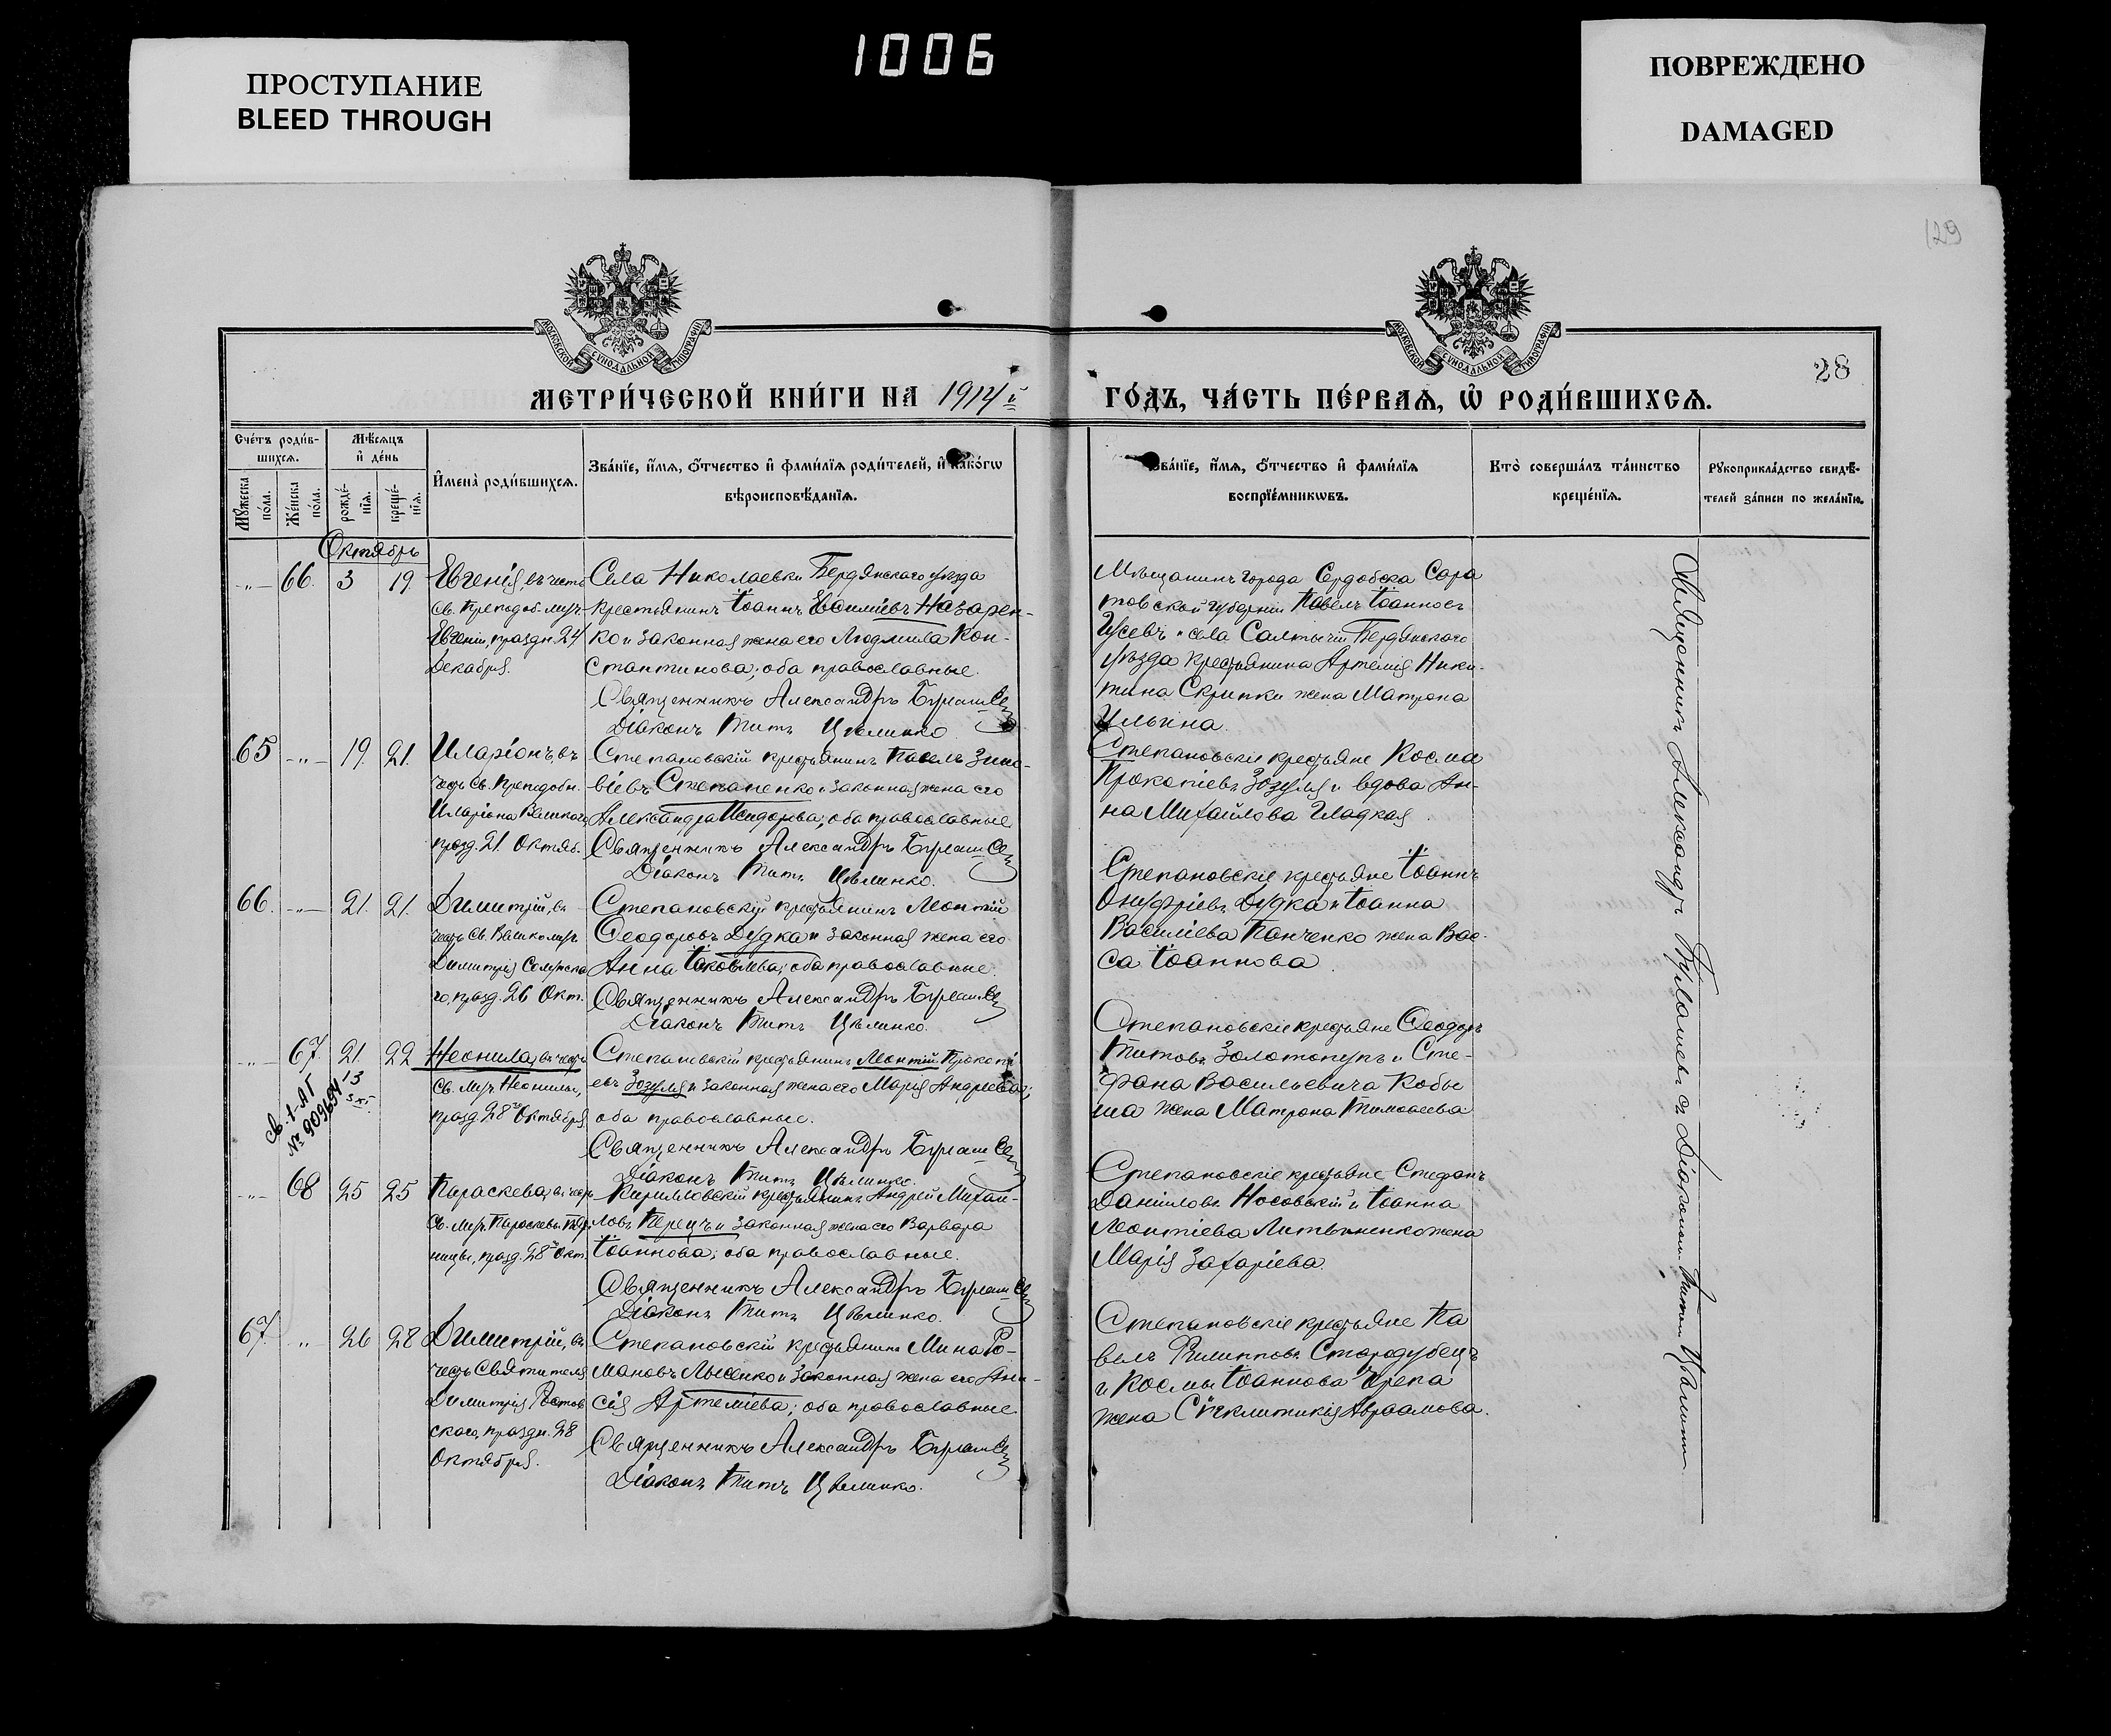 ПРОСТУПАНИЕ
BLEED THROUGH
1006
ПОВРЕЖДЕНО
DAMAGED
129
МОСКОВСКОЙ СѴНОДАЛЬНОЙ ТИПОГРАФІИ
МОСКОВСКОЙ СѴНОДАЛЬНОЙ ТИПОГРАФІИ
28
МЕТРИ́ЧЕСКОЙ КНИ́ГИ НА 1914й
ГО́ДЪ, ЧА́СТЬ ПЕ́РВАѦ, Ѡ҆ РОДИ́ВШИХСѦ.
Сче́тъ роди́в-
шихсѧ.
Мѣ́сѧцъ
и҆ де́нь
Мꙋ́жеска по́ла.
Же́нска по́ла.
рожде́-нїѧ.
креще́-нїѧ.
И҆мена̀ роди́вшихсѧ.
Зва́нїе, и҆́мѧ, ѻ҆́тчество и҆ фами́лїѧ роди́телей, и҆ како́гѡ
вѣроисповѣ́данїѧ.
Зва́нїе, и҆́мѧ, ѻ҆́тчество и҆ фами́лїѧ
воспрїе́мникѡвъ.
Кто̀ соверша́лъ та́инство
креще́нїѧ.
Рꙋкоприкла́дство свидѣ́-
телей за́писи по жела́нїю.
Октябрь
-„- 66. 3 19. Евгенія, въ честь
Св. Преподоб. муч.
Евгеніи, праздн. 24
Декабря.
Села Николаевки Бердянскаго уѣзда
крестьянинъ Іоаннъ Евсиміевъ Назарен-
ко и законная жена его Людмила Кон-
стантинова; оба православные.
Священникъ Александръ
Діаконъ Титъ Цѣлинко.
Мѣщанинъ города Сердобска Сара
товской губерніи Павелъ Іоанновъ
Гусевъ и села Салтычіи Бердянскаго
уѣзда крестьянина Артемія Ники-
тина Скрипки жена Матрона
Ильина.
65 -„- 19. 21. Иларіонъ, въ
честь Св. Преподобн.
Иларіона Великаго,
празд. 21. Октяб.
Степановскій крестьянинъ Павелъ Зино-
віевъ Степаненко и законная жена его
Александра Исидорова; оба православные.
Священникъ Александръ
Діаконъ Титъ Цѣлинко.
Степановскіе крестьяне Косма
Прокопіевъ Зозуля и вдова Ан-
на Михайлова Гладкая.
66. -„- 21. 21. Димитрій, въ
честь Св. Великомуч.
Димитрія Солунска
го, празд. 26 Окт.
Степановскій крестьянинъ Леонтій
Ѳеодоровъ Дудка и законная жена его
Анна Іаковлева; оба православные.
Священникъ Александръ
Діаконъ Титъ Цѣлинко.
Степановскіе крестьяне Іоаннъ
Онуфріевъ Дудка и Іоанна
Василіева Панченко жена Вас-
са Іоаннова.
-„- 67. 21. 22 Неонила, въ честь
Св. Муч. Неонилы,
празд. 28го Октября
Св. 1-АГ
№ 909694
Степановскій крестьянинъ Леонтій Прокопі-
евъ Зозуля и законная жена его Марія Андреева;
оба православные.
Священникъ Александръ
Діаконъ Титъ Цѣлинко.
Степановскіе крестьяне Ѳеодоръ
Титовъ Золотопупъ и Сте-
фана Васильевича Кобы
ша жена Матрона Тимоѳеева
-„- 68 25 25 Параскева, въ честь
Св. Муч. Параскевы Пят-
ницы, празд. 28го Окт.
Кирилловскій крестьянинъ Андрей Михаи-
ловъ Перецъ и законная жена его Варвара
Іоаннова; оба православные.
Священникъ Александръ
Діаконъ Титъ Цѣлинко.
Степановскіе крестьяне Стефанъ
Даніиловъ Носовскій и Іоанна
Леонтіева Литвиненко жена
Марія Захаріева.
67. „ 26 28 Димитрій, въ
честь Святителя
Димитрія Ростов
скаго, праздн. 28
Октября.
Степановскій крестьянинъ Мина Ро-
мановъ Лысенко и законная жена его Ани-
сія Артеміева; оба православные.
Священникъ Александръ
Діаконъ Титъ Цѣлинко.
Степановскіе крестьяне Па
велъ Филипповъ Стародубецъ
и Космы Іоаннова Чрепа
жена Сѵнклитикія Авраамова.
Священникъ Александръ съ Діакономъ Титомъ Цѣлинко